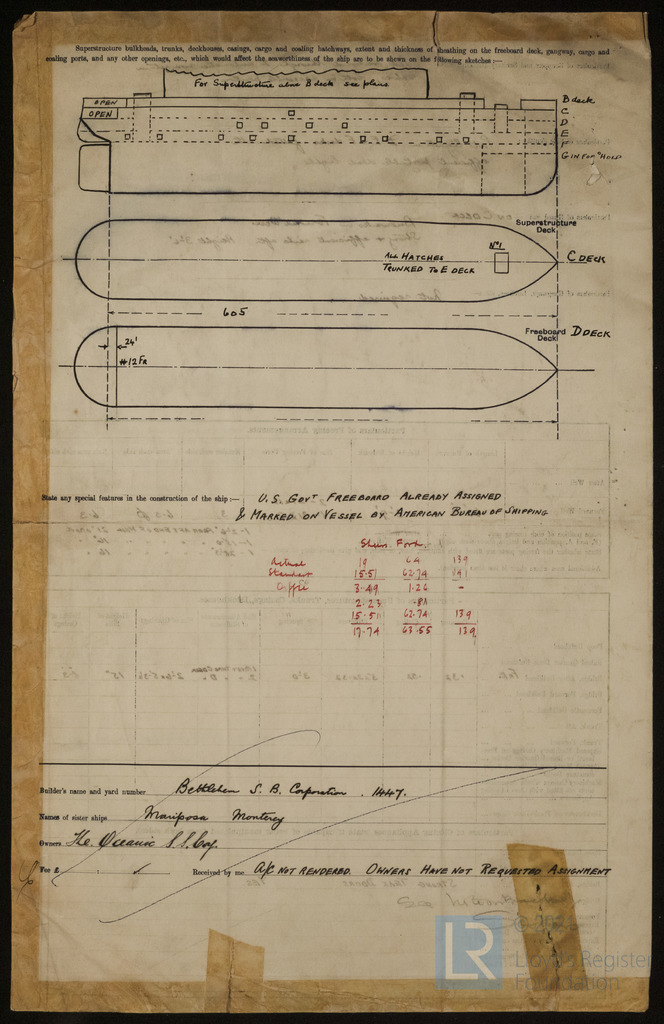 Superstructure bulkheads, trunks, deckhouses, casings, cargo and coaling hatchways, extent and thickness of sheathing on the freeboard deck, gangway, cargo and
coaling ports, and any other openings, etc., which would affect the seaworthiness of the ship are to be shewn on the following sketches :—
For Superstructure above B deck see plans
OPEN
OPEN
B deck
C
D
E
F
G IN FORWD HOLD
Superstructure
Deck
C DECK
ALL HATCHES
TRUNKED TO E DECK
No 1
605
Freeboard
Deck
D DECK
24'
#12 FR
State any special features in the construction of the ship :—
U.S. GOVT FREEBOARD ALREADY ASSIGNED
& MARKED ON VESSEL BY AMERICAN BUREAU OF SHIPPING
Actual 19 64 139
Standard 15.51 62.74 141
3.49 1.26 -
2.23
15.51 62.74 139
17.74 63.55 139
Builder's name and yard number
Bethlehem S. B. Corporation . 1447.
Names of sister ships
Mariposa Monterey
Owners
The Oceanic S.S. Coy.
Fee £ : :
Received by me
A/C NOT RENDERED. OWNERS HAVE NOT REQUESTED ASSIGNMENT
LR
© 2021
Lloyd's Register
Foundation